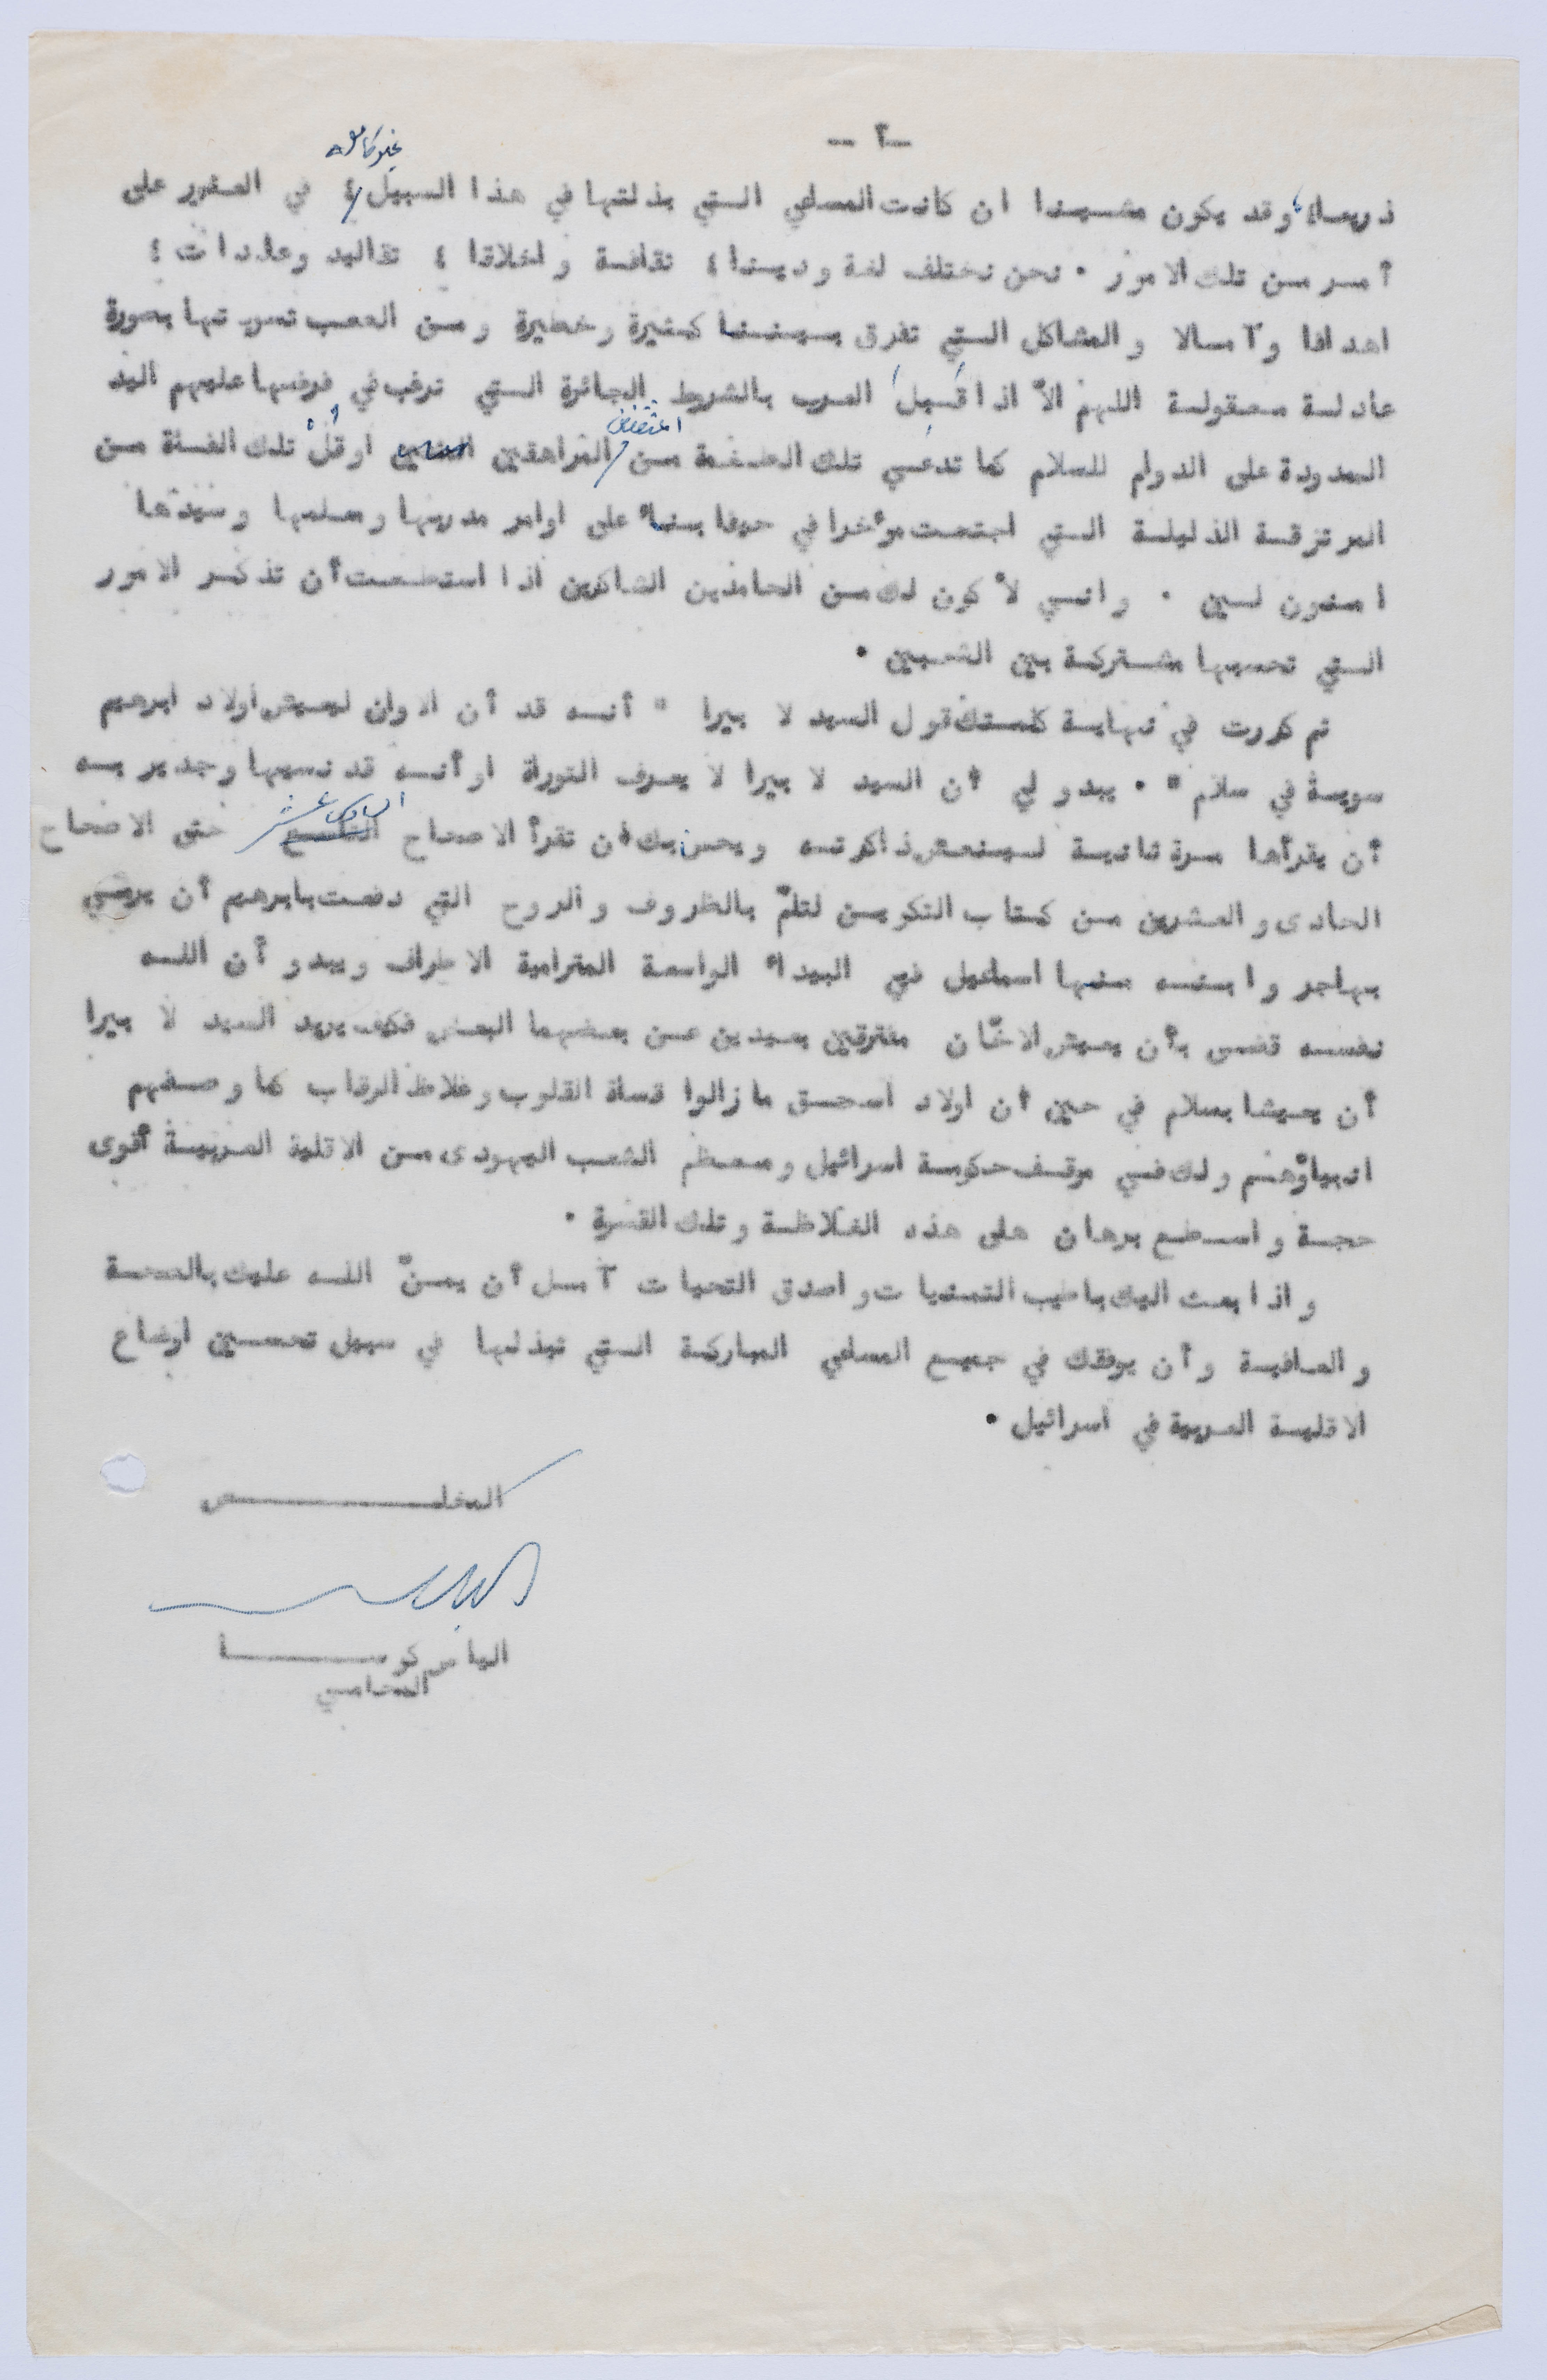 -٢-
غير كاملة
ذريعا، وقد يكون مشينا ان كانت المساعي التي بذلتها في هذا السبيل ، في العثور على
أمر من تلك الامور . نحن نختلف لغة ودينا ، ثقافة واخلاقا ، تقاليد وعادات ،
اهدافا وآمالا والمشاكل التي تفرق بيننا كثيرة وخطيرة ومن الصعب تسويتها بصورة
عادلة معقولة اللهم الاّ اذا قبل العرب بالشروط الجائرة التي ترغب في فرضها عليهم اليد
الممدودة على الدوام للسلام كما تدعي تلك الطغمة من المراهقين او قل تلك الفئة من
المرتزقة الذليلة التي اجتمعت مؤخرا في حيفا بناء على اوامر مدربها ومعلمها وسيدها
امنون لين . وانني لأكون لك من الحامدين الشاكرين اذا استطعت أن تذكر الامور
التي تحسبها مشتركة بين الشعبين .
ثم كررت في نهاية كلمتك قول السيد لا بيرا " أنه قد أن الاوان ليعيش اولاد ابرهيم
سوية في سلام " . يبدو لي أن السيد لا بيرا لا يعرف التوراة او أنه قد نسيها وجدير به
السادس عشر
أن يقرأها مرة ثانية لينعش ذاكرته ويحسن بك أن تقرأ الاصحاح التاسع حتى الاصحاح
الحادى والعشرين من كتاب التكوين لتلمّ بالظروف والروح التي دفعت بابرهيم أن يرمي
بهاجر وابنه منها اسماعيل في البيداء الواسعة المترامية الاطراف ويبدو أن الله
نفسه قضى بأن يعيش الاخّان مفترقين بعيدين عن بعضهما البعض فكيف يريد السيد لا بيرا
أن يعيشا بسلام في حين أن اولاد اسحق ما زالوا قساة القلوب وغلاظ الرقاب كما وصفهم
انبياؤهم ولك في موقف حكومة اسرائيل ومعظم الشعب اليهودى من الاقلية العربية أقوى
حجة واسطع برهان على هذه الغلاظة وتلك القسوة .
واذ ابعث اليك باطيب التمنيات واصدق التحيات آمل أن يمنّ الله عليك بالصحة
والعافية وأن يوفقك في جميع المساعي المباركة التي تبذلها في سبيل تحسين اوضاع
الاقلية العربية في اسرائيل .
المخلص
الياس كوسا
المحامي